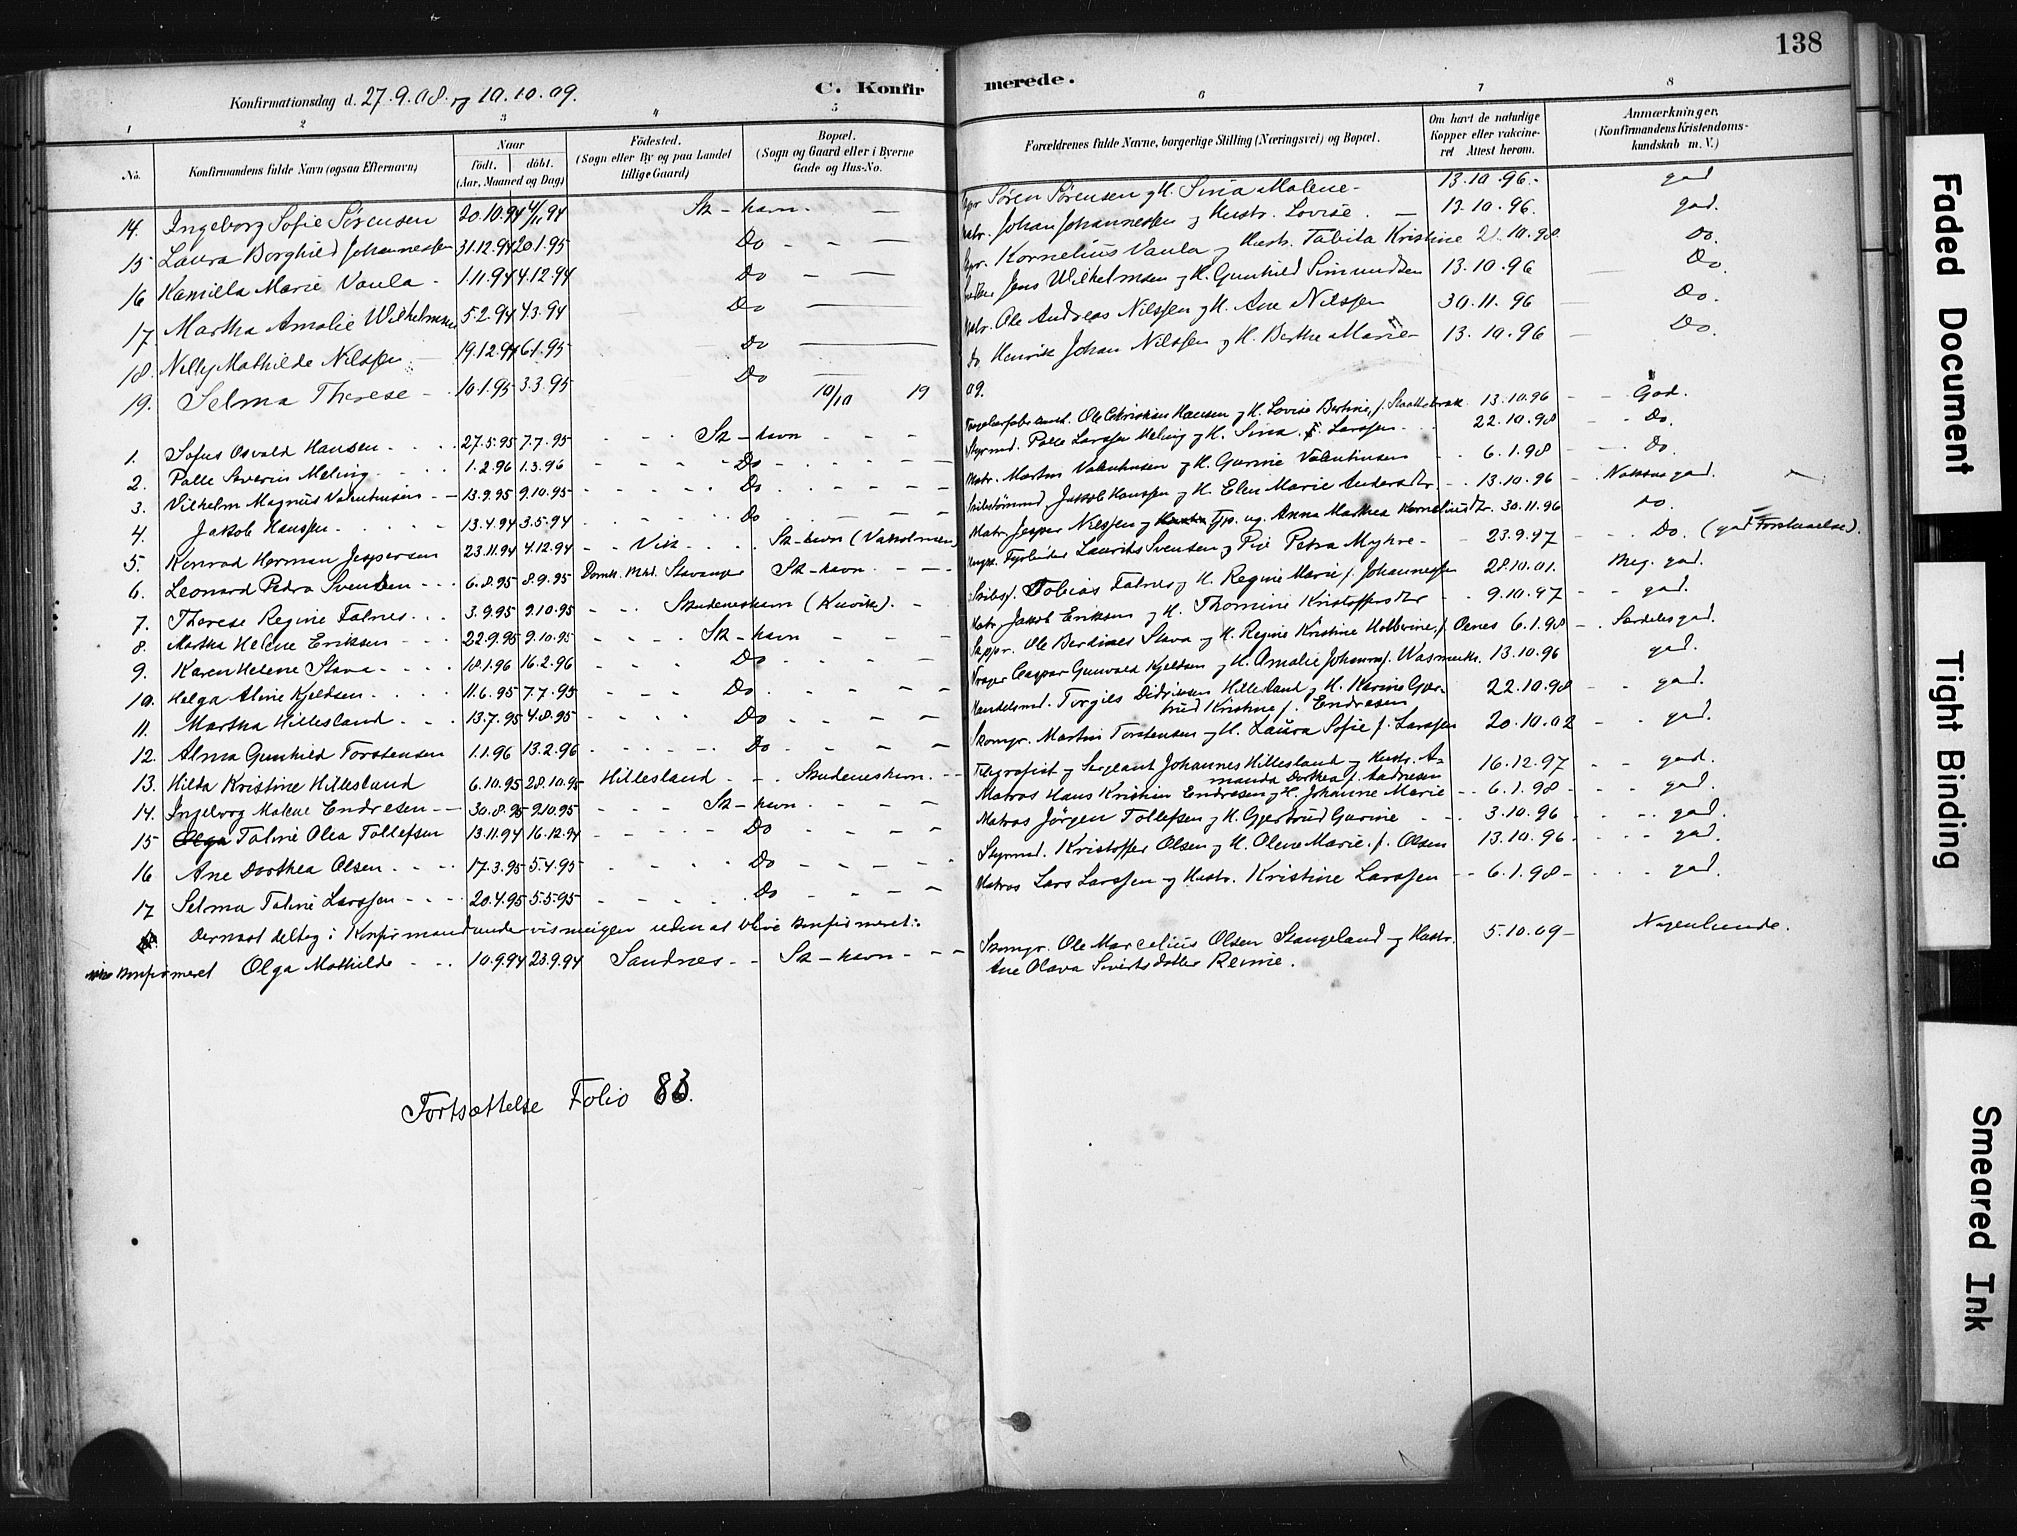 138
Konfirmationsdag d. 27.9.08. og 10.10.09.
C. Konfirmerede.
1 2 3 4 5 6 7 8
No.
Konfirmandens fulde Navn (ogsaa Efternavn)
Naar
födt. döbt.
(Aar, Maaned og Dag)
Födested.
(Sogn eller By og paa Landet
tillige Gaard)
Bopæl.
(Sogn og Gaard eller i Byerne
Gade og Hus-No.
Forældrenes fulde Navne, borgerlige Stilling (Næringsvei) og Bopæl.
Om havt de naturlige
Kopper eller vakcine-
ret Attest herom.
Anmærkninger.
(Konfirmandens Kristendoms-
kundskab m. V.)
14. Ingeborg Sofie Sörensen 20.10.94 4/11.94 Sk-havn. Sören Sörensen og H. Sina Malene 13.10.96. god
15 Laura Borghild Johannessen 31.12.94 20.1.95 Do Matr. Johan Johannessen og Hustr. Lovise 13.10.96. god.
16 Kamilla Marie Vaula 1.11.94 4.12.94 Do Kornelius Vaula og Hustr. Tabita Kristine 21.10.98 Do.
17 Martha Amalie Wilhelmsen 5.2.94 4.3.94 Do Jens Wilhelmsen og H. Gunhild Simundsen 13.10.96 Do
18. Nelly Mathilde Nilssen 19.12.94 6.1.95 Do Matr. Ole Andreas Nilssen og H. Ane Nilssen 30.11.96 Do.
19. Selma Therese 10.1.95 3.3.95 Do Do Henrik Johan Nilssen og H. Berthe Marie 13.10.96 Do.
10/10 19 09.
1. Sofus Osvald Hansen 27.5.95 7.7.95 Sk-havn Ole Christian Hansen og H. Lovise Bertine, f. 13.10.96 God.
2. Palle Severin Meling 1.2.96 1.3.96 Do Styrmd. Palle Larssen Meling og H. Sina Larssen 22.10.98 Do.
3. Vilhelm Magnus Valentinsen 13.9.95 9.10.95 Do Matr. Martin Valentinsen og H. Gurine Valentinsen 6.1.98 Do
4. Jakob Hanssen 13.4.94 3.5.94 Do Jakob Hanssen og H. Elen Marie 13.10.96 god.
5. Konrad Herman Jespersen 23.11.94 4.12.94 Vik Sk-havn Matr. Jesper Nilssen og Anna Marthea 30.11.96 Do
6. Leonard Pedro Svendsen 6.8.95 8.9.95 Stavanger Sk-havn Laurits Svensen og Petra Myhre 23.9.97 Do. (god Forstaaelse).
7. Therese Regine Falnes 3.9.95 9.10.95 Skudeneshavn Tobias Falnes og H. Regine Marie f. Johannessen 28.10.01. Meg. god.
8. Martha Helene Eriksen 22.9.95 9.10.95 Sk-havn Matr. Jakob Eriksen og H. Thomine 9.10.97 god.
9. Karen Helene Stava 18.1.96 16.2.96 Do Skppr. Ole Berdines Stava og H. Regine Kristine f. Oenes 6.1.98 Særdeles god.
10. Helga Aline Kjeldsen 11.6.95 7.7.95 Do Caspar Gunvald Kjeldsen og H. Amalie 13.10.96 god.
11. Martha Hillesland 13.7.95 4.8.95 Do Handelsmd. Torgils Didriksen Hillesland og H. Karine Gjer-
trud Kristine f. Endresen 22.10.98 god.
12. Alma Gunhild Torstensen 1.1.96 13.2.96 Do Skomgr. Martin Torstensen og H. Laura Sofie f. Larssen 20.10.02 god.
13. Hilda Kristine Hillesland 6.10.95 28.10.95 Hillesland Skudeneshavn Telegrafist og Sergeant Johannes Hillesland og Hustr. A-
manda Dorthea f. Andresen 16.12.97 god.
14. Ingeborg Malene Endresen 30.8.95 9.10.95 Sk-havn Matros Hans Kristian Endresen og H. Johanne Marie 6.1.98 god.
15 Olga Taline Olea Tollefsen 13.11.94 16.12.94 Do Matros Jörgen Tollefsen og H. Gjertrud Gurine 3.10.96 god.
16 Ane Dorthea Olsen 17.3.95 5.4.95 Do Styrmd. Kristoffer Olsen og H. Olene Marie f. Olsen 13.10.96 god.
17 Selma Taline Larssen 20.4.95 5.5.95 Do Matros Lars Larssen og Hustr. Kristine Larssen 6.1.98 god.
Dernæst deltog i Konfirmandundervisningen uden at blive konfirmeret:
konfirmeret Olga Mathilde 10.9.94 23.9.94 Sandnes Sk-havn Skomgr. Ole Marcelius Olsen Stangeland og Hustr.
Ane Olava Sivertsdatter Reime. 5.10.09 Nogenlunde.
Fortsættelse Folio 83.
Faded Document
Tight Binding
Smeared Ink